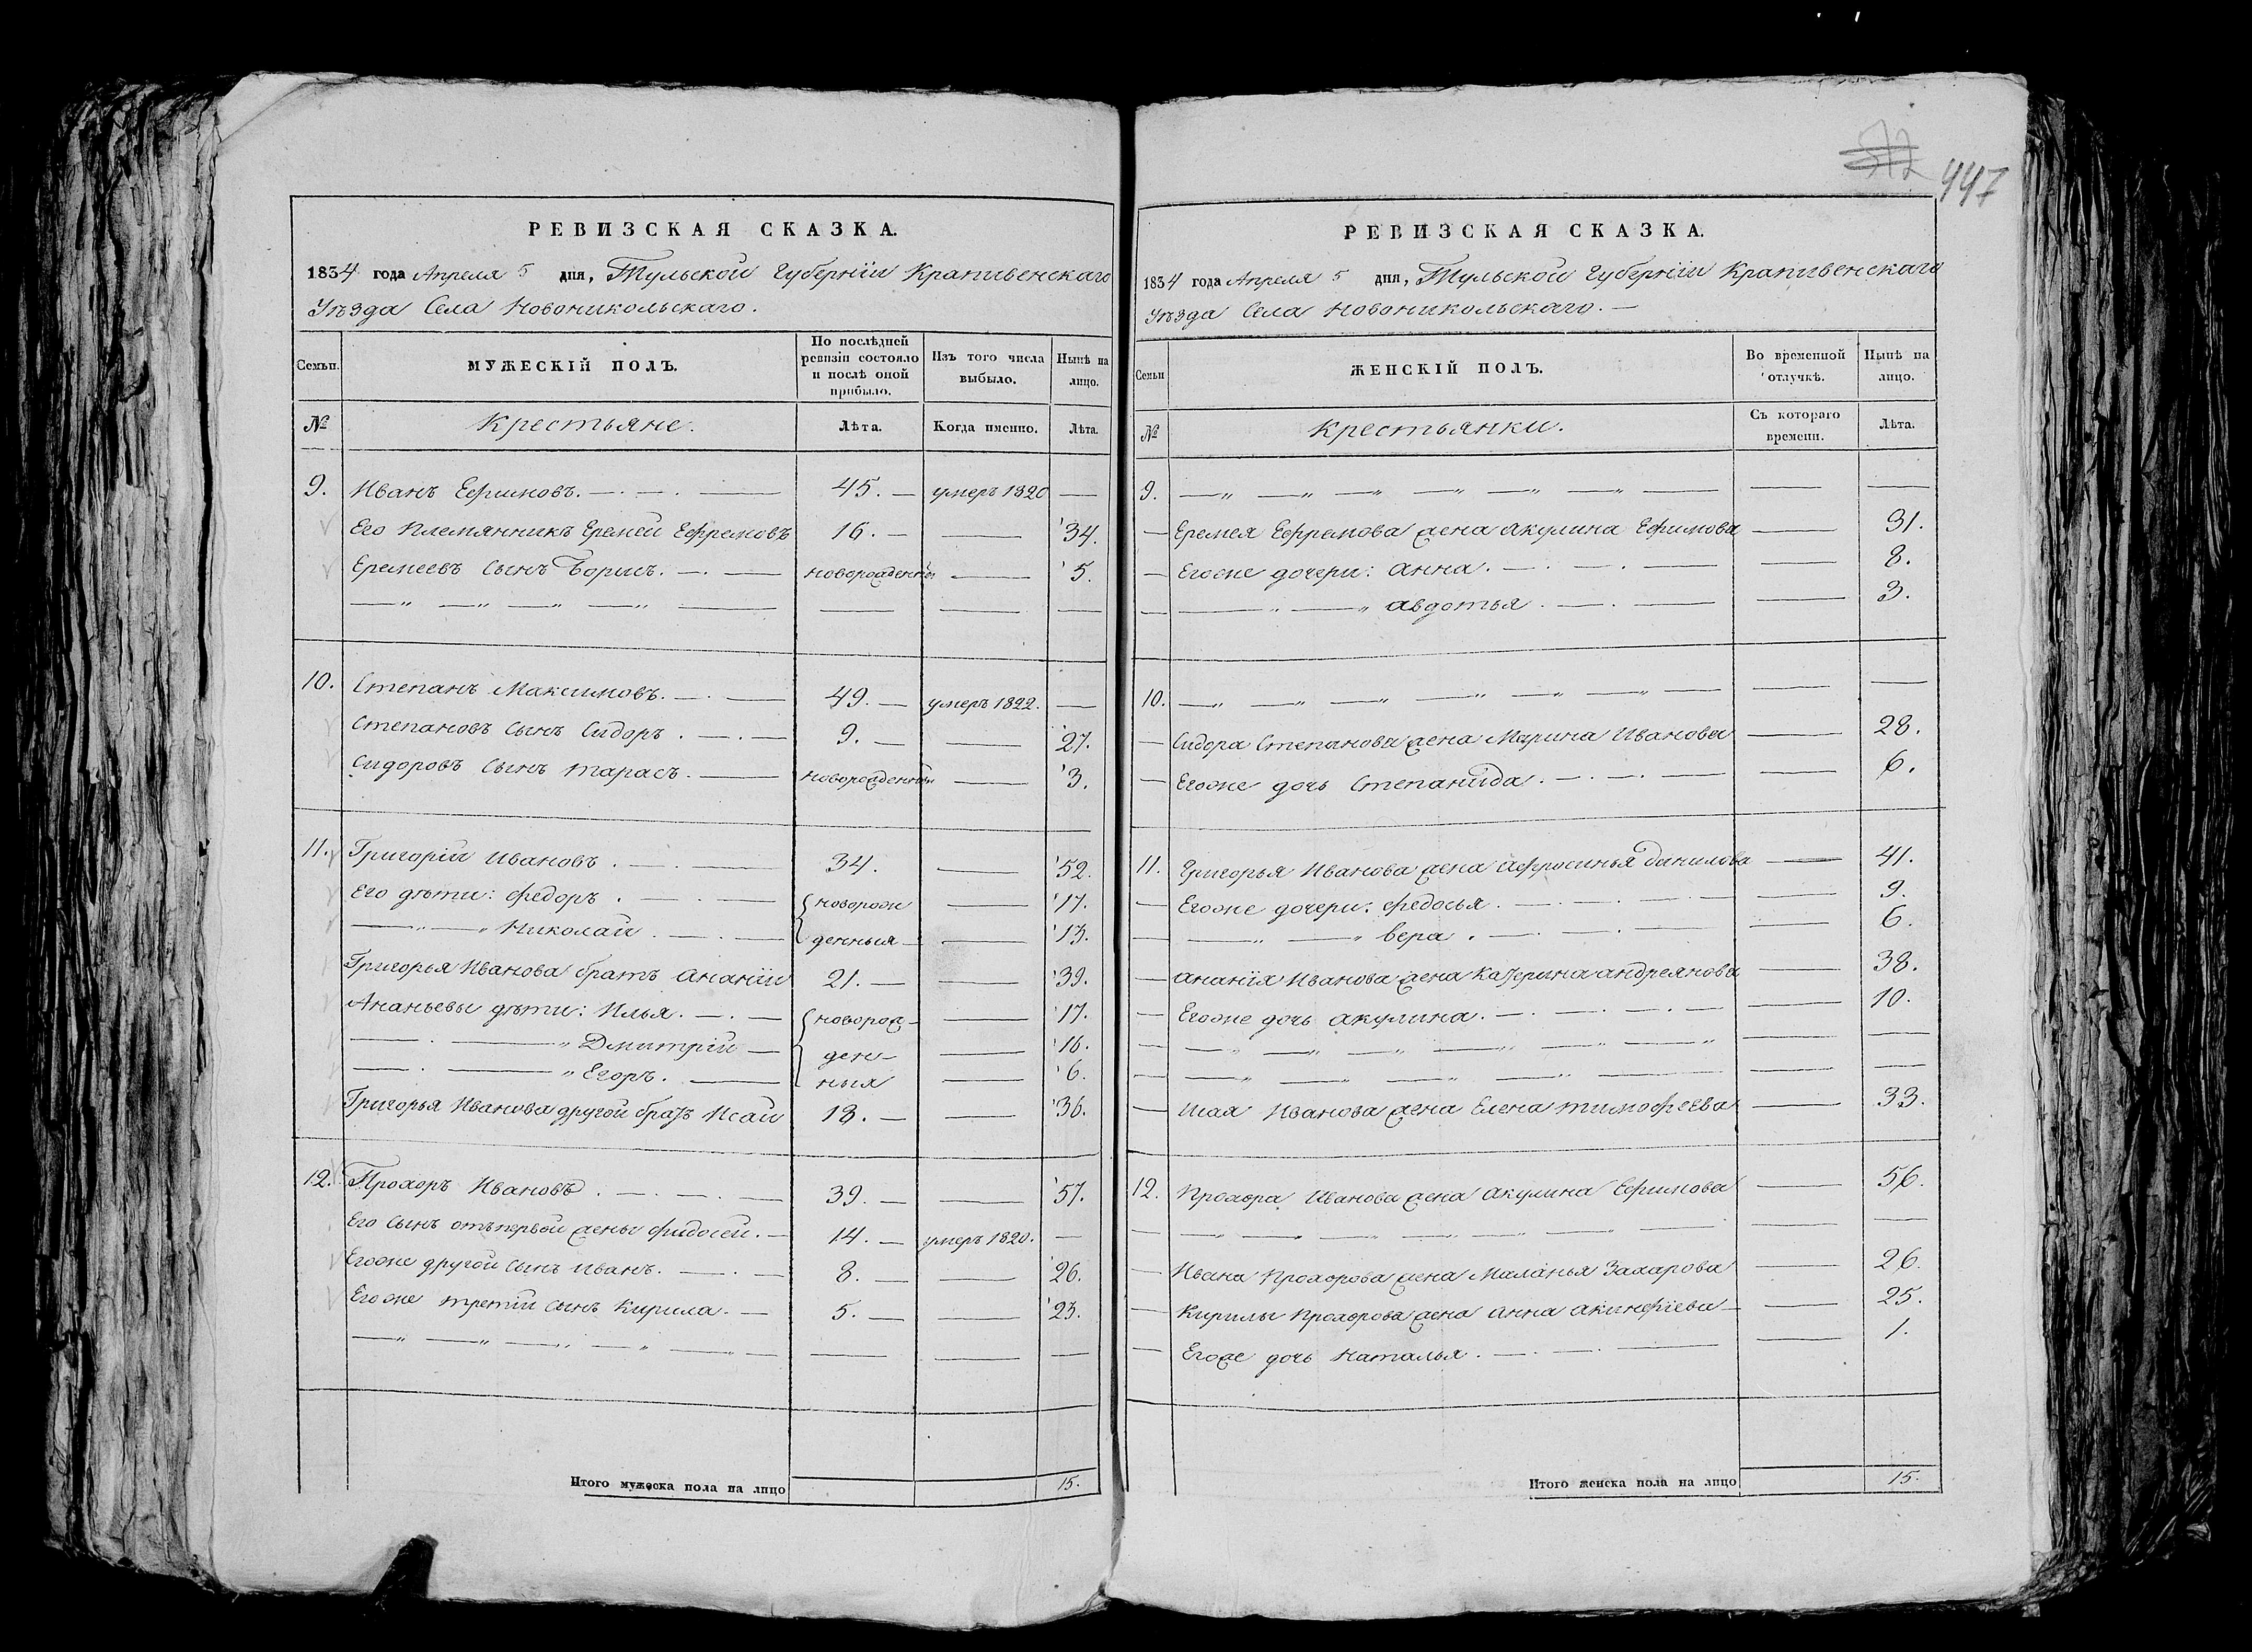 447
РЕВИЗСКАЯ СКАЗКА.
1834 года Апреля 5 дня, Тульской Губернiи Крапивенскаго
Уѣзда Села Новоникольскаго.
Семьи. МУЖЕСКІЙ ПОЛЪ. По послѣдней ревизіи состояло и послѣ оной прибыло. Изъ того числа выбыло. Нынѣ на лицо.
№ Крестьяне. Лѣта. Когда именно. Лѣта.
9. Иванъ Ефимовъ. 45. умеръ 1820
Его Племянникъ Еремей Ефремовъ 16. 34.
Еремеевъ Сынъ Борисъ. новорожденный 5.
10. Степанъ Максимовъ. 49. умеръ 1822.
Степановъ Сынъ Сидоръ. 9. 27.
Сидоровъ Сынъ тарасъ. новорожденный 3.
11. Григорiй Ивановъ. 34. 52.
Его дѣти: Федоръ. новорож 17.
Николай. денныя 13.
Григорья Иванова братъ Ананiй 21. 39.
Ананьевы дѣти: Илья. новорож 17.
Дмитрiй ден 16.
Егоръ. ныя 6.
Григорья Иванова другой братъ Исай 18. 36.
12. Прохоръ Ивановъ. 39. 57.
Его Сынъ отъ первой жены Фидосей. 14. умеръ 1820.
Егоже другой Сынъ Иванъ. 8. 26.
Егоже третiй Сынъ Кирила. 5. 23.
Итого мужеска пола на лицо 15.
РЕВИЗСКАЯ СКАЗКА.
1834 года Апреля 5 дня, Тульской Губернiи Крапивенскаго
Уѣзда Села Новоникольскаго.
Семьи ЖЕНСКІЙ ПОЛЪ. Во временной отлучкѣ. Нынѣ на лицо.
№ Крестьянки. Съ котораго времени. Лѣта.
9.
Еремея Ефремова жена акулина Ефимова 31.
Егоже дочери: анна. 8.
авдотья. 3.
10.
Сидора Степанова жена Марина Иванова 28.
Егоже дочь Степанида. 6.
11. Григорья Иванова жена Афросинья данилова 41.
Егоже дочери: федосья. 9.
вера. 6.
ананiя Иванова жена Катерина андреянова 38.
Егоже дочь акулина. 10.
Исая Иванова жена Елена тимофеева 33.
12. Прохора Иванова жена акулина Ефимова 56.
Ивана Прохорова жена Маланья Захарова 26.
Кирилы Прохорова жена анна акинфiева 25.
Егоже дочь Наталья. 1.
Итого женска пола на лицо 15.